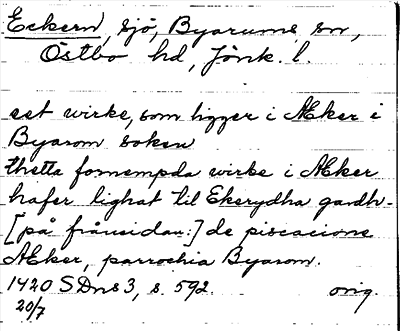 Eckern, sjö, Byarums sn,
Östbo hd, Jönk. l.
eet wirke, som ligger i Æker i
Byarom soken
thetta fornempda wirke i Æker
hafer lighat til Ekerydha gardh -
[på frånsidan:] de piscacione
Æker, parrochia Byarom.
1420 SDns 3, s. 592. orig.
20/7